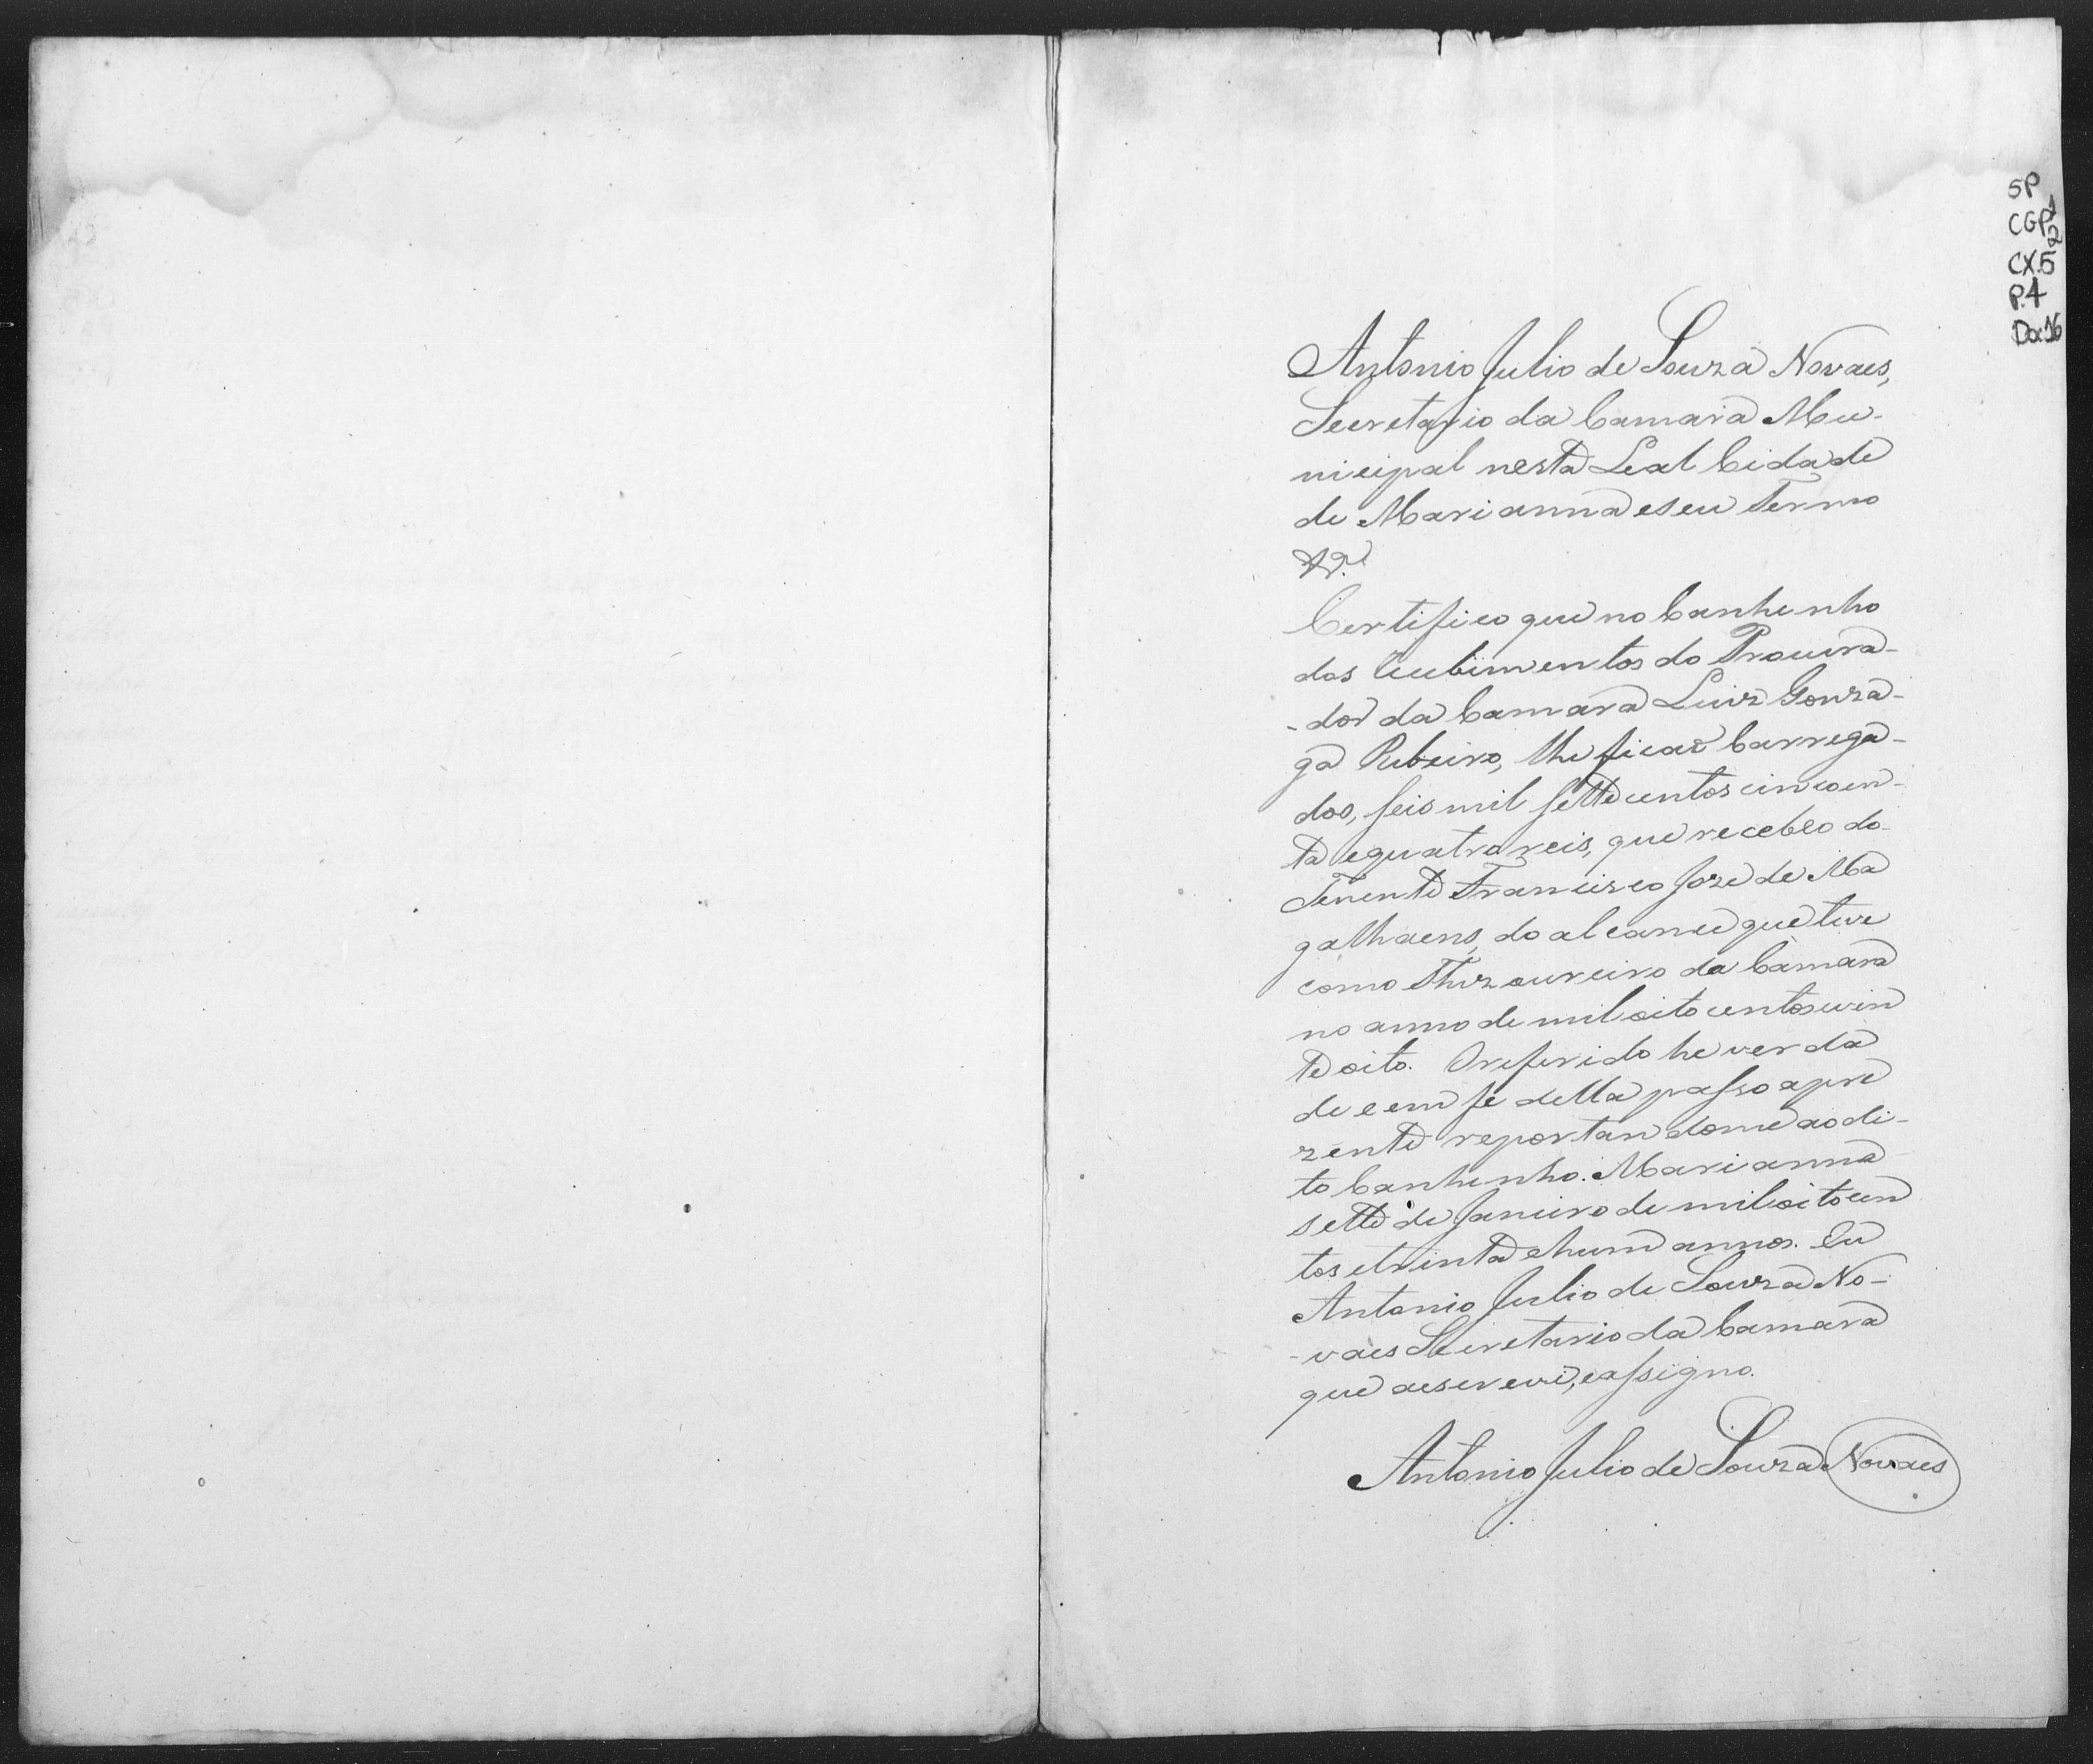 SP
CGP 1
2
CX.5
P.4
Doc 16
Antonio Julio de Souza Novaes,
Secretario da Camara Mu-
nicipal nesta Leal Cidade
de Marianna eseu Termo
&.ª
Certifico que no Canhenho
dos recebimentos do Procura-
-dor da Camara Luiz Gonza-
ga Ribeiro, lhe ficaõ Carrega-
dos, seis mil settecentos cincoen-
ta equatro reis, que recebeo do
Tenente Francisco Jozé de Ma
galhaens, do alcance que teve
como Thezoureiro da Camara
no anno de mil oito centos evin
te oito. Oreferido he verda
de e em fé della passo apre
zente reportandome ao di-
to Canhenho. Marianna
sette de Janeiro de mil oito cen
tos etrinta ehum annos. Eu
Antonio Julio de Souza No-
-vaes Secretario da Camara
que aescrevi, eassigno.
Antonio Julio de Souza Novaes